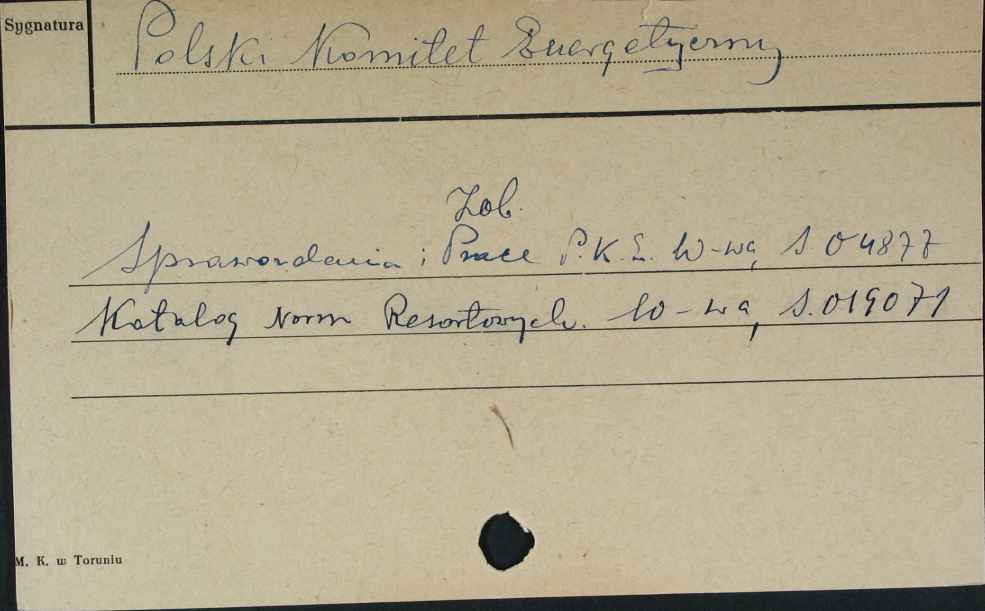 Sygnatura
Polski Komitet Energetyczny
Zob.
Sprawozdania i Prace P.K.E. W-wa, S. 04877
Katalog Norm Resortowych. W-wa, S. 019071
M. K. w Toruniu